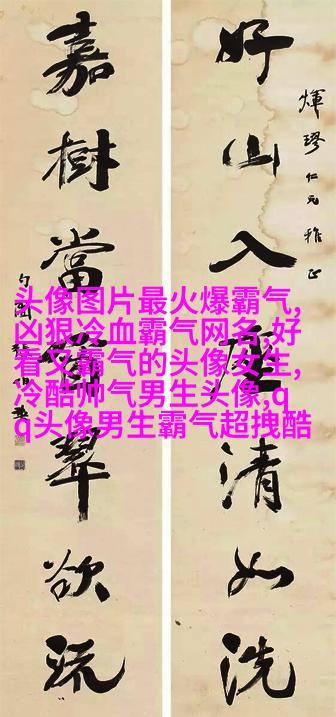 煇璆仁兄雅正
好山入座清如洗
嘉樹當窗翠欲流
头像图片最火爆霸气,
凶狠冷血霸气网名,好
看又霸气的头像女生,
冷酷帅气男生头像,q
q头像男生霸气超拽酷